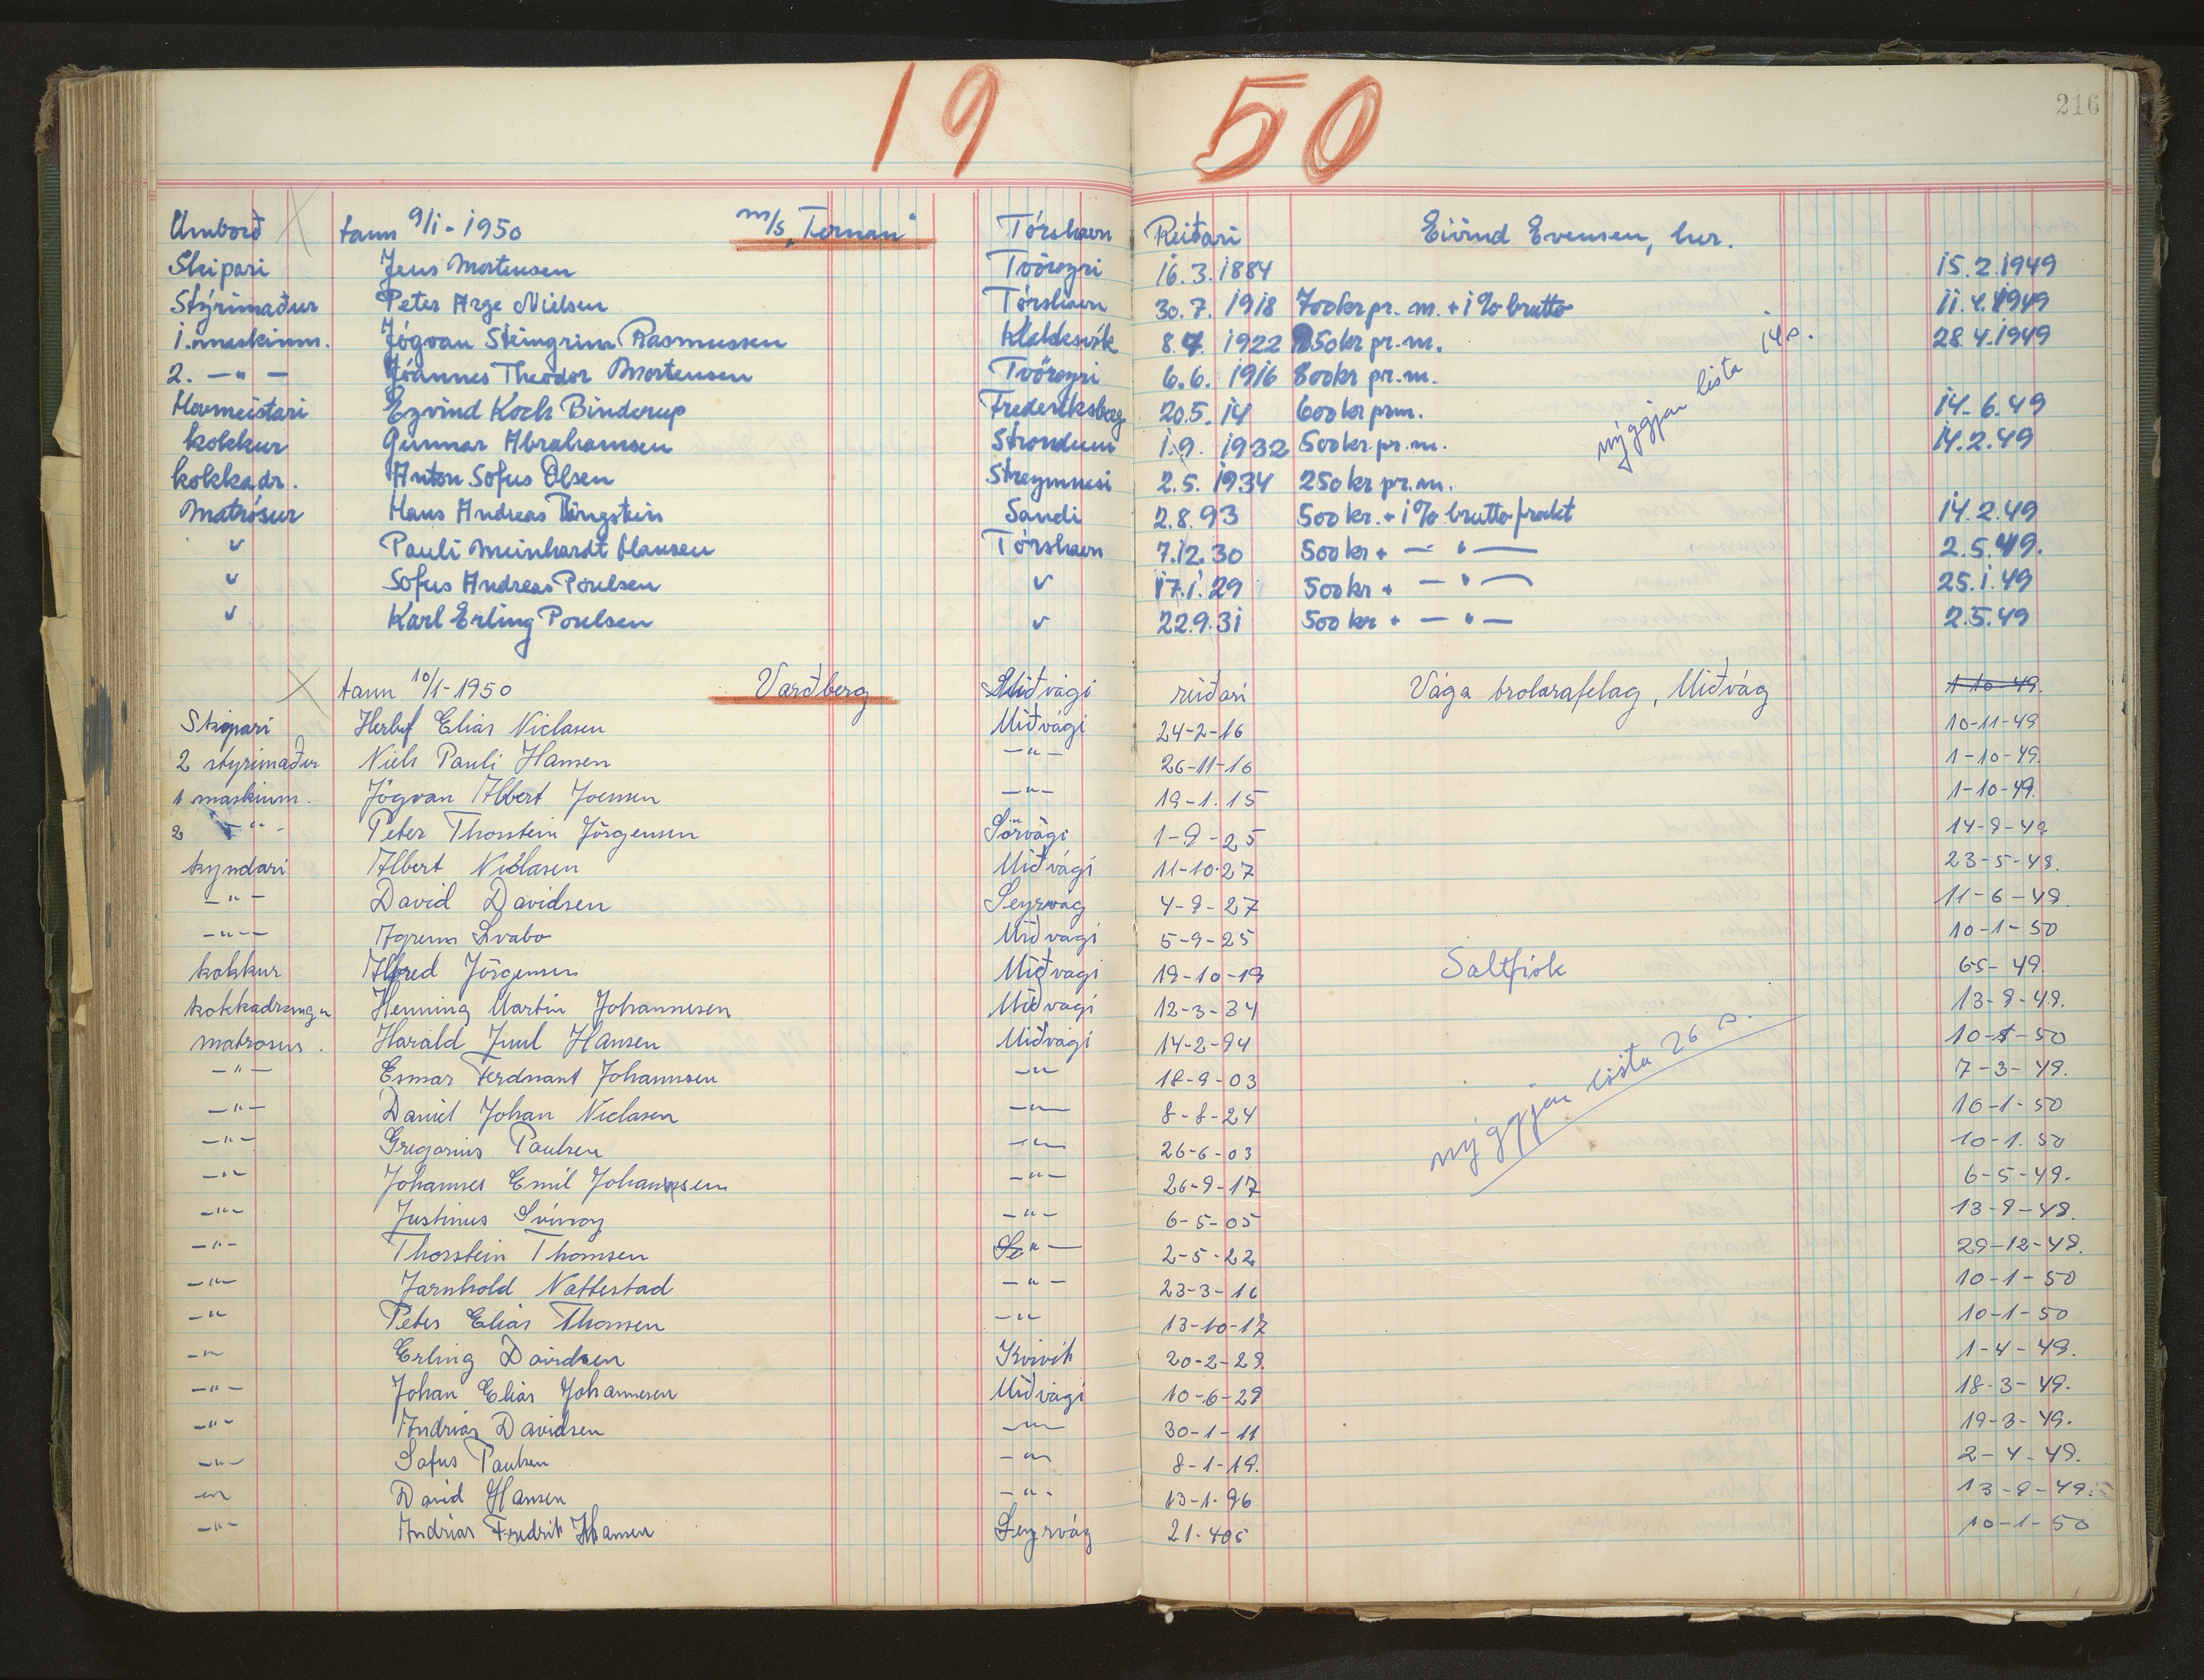 19 50
216
Umborð tann 9/1-1950 m/s „Ternan" Tórshavn Reiðari Eivind Evensen, her.
Skipari Jens Mortensen Tvöroyri 16.3.1884 15.2.1949
Stýrimaður Peter Arge Nielsen Tórshavn 30.7.1918 700kr pr. m. + 1% brutto 11.4.1949
1. maskinm. Jógvan Steingrim Rasmussen Klakksvík 8.7. 1922 850kr pr. m. 28.4.1949
2. — " — Jóannes Theodor Mortensen Tvöroyri 6.6. 1916 800kr pr. m.
nýggjan lista 14 s.
Hovmeistari Eyvind Koch Binderup Frederiksberg 20.5.14 600kr prm. 14.6.49
kokkur Gunnar Abrahamsen Strondum 1.9. 1932 500kr. pr. m. 14.2.49
kokkadr. Anton Sofus Olsen Streymnesi 2.5. 1934 250kr pr. m.
Matrósur Hans Andreas Tingstein Sandi 2.8.93 500kr. + 1% brutto frakt 14.2.49
" Pauli Meinhardt Hansen Tórshavn 7.12.30 500kr + — " — 2.5.49.
" Sofus Andreas Poulsen " 17.1.29 500kr + — " — 25.1.49
" Karl Erling Poulsen " 22.9.31 500 kr + — " — 2.5.49
tann 10/1-1950 Varðberg Miðvági reiðari Vága trolarafelag, Miðvág 1-10-49.
Skipari Herluf Elias Niclasen Miðvági 24-2-16 10-11-49
2 styrimaður Niels Pauli Hansen — " — 26-11-16 1-10-49.
1 maskinm. Jógvan Albert Joensen — " — 19-1-15 1-10-49.
2 — " — Peter Thorstein Jörgensen Sörvági 1-9-25 14-9-49
kyndari Albert Niclasen Miðvági 11-10-27 23-5-49.
— " — David Davidsen Seyrvag 4-9-27 11-6-49.
— " — Svabo Miðvagi 5-9-25 10-1-50
kokkur Alfred Jörgensen Miðvagi 19-10-19 6-5-49.
Saltfisk
kokkadrongur Henning Martin Johannesen Miðvagi 12-3-34 13-9-49.
matrosur. Harald Juul Hansen Miðvagi 14-2-94 10-1-50
— " — Esmar Ferdnant Johannsen — " — 18-9-03 7-3-49.
— " — Daniel Johan Niclasen — " — 8-8-24 10-1-50
nýggjan lista 26 s.
— " — Gregorius Paulsen — " — 26-6-03 10-1-50
— " — Johannes Emil Johannsen — " — 26-9-17 6-5-49.
— " — Justinus Svinoy — " — 6-5-05 13-9-49.
— " — Thorstein Thomsen — " — 2-5-22 29-12-49.
— " — Jarnhold Nattestad — " — 23-3-16 10-1-50
— " — Peter Elias Thomsen — " — 13-10-17 10-1-50
— " — Erling Davidsen Kvivik 20-2-29. 1-4-49.
— " — Johan Elias Johannesen Miðvági 10-6-29 18-3-49.
— " — Andrias Davidsen — " — 30-1-11 19-3-49.
— " — Sofus Paulsen — " — 8-1-19. 2-4-49.
— " — David Hansen — " — 13-1-96 13-9-49.
— " — Andrias Fredrik Hansen Seyrvág 21-405 10-1-50